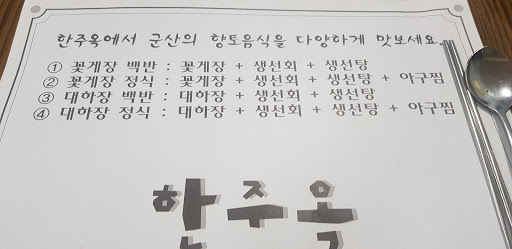 한주옥에서 군산의 향토음식을 다양하게 맛보세요.
① 꽃게장 백반 : 꽃게장 + 생선회 + 생선탕
② 꽃게장 정식 : 꽃게장 + 생선회 + 생선탕 + 아구찜
③ 대하장 백반 : 대하장 + 생선회 + 생선탕
④ 대하장 정식 : 대하장 + 생선회 + 생선탕 + 아구찜
한주옥